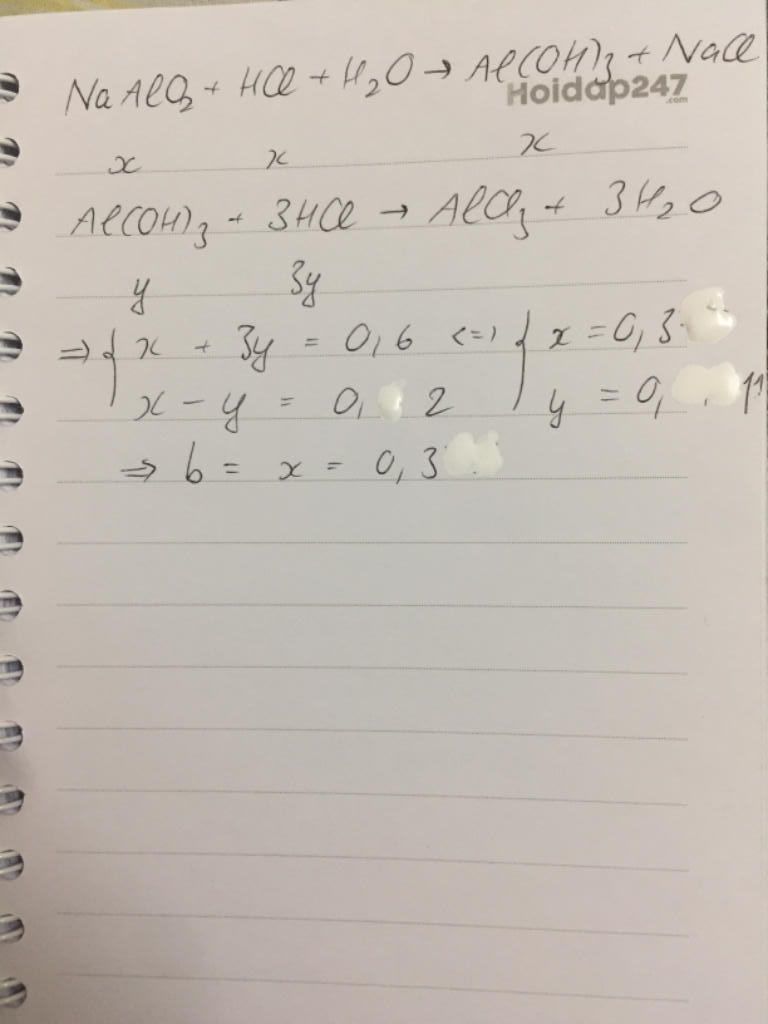 NaAlO₂ + HCl + H₂O → Al(OH)₃ + NaCl
Hoidap247
.com
x x x
Al(OH)₃ + 3HCl → AlCl₃ + 3H₂O
y 3y
⇒ { x + 3y = 0,6 <=> { x = 0,3
x - y = 0, 2 y = 0,
⇒ b = x = 0,3